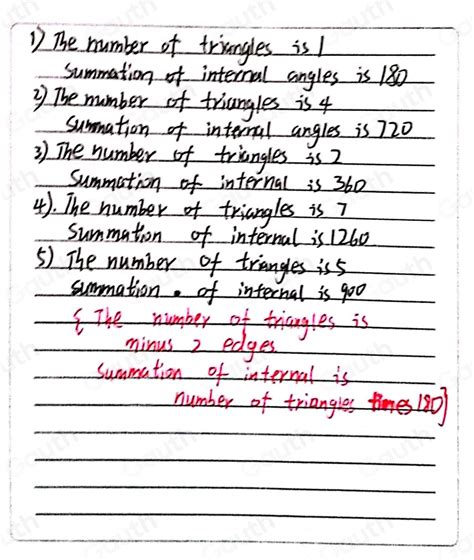 1) The number of triangles is 1
Summation of internal angles is 180
2) The number of triangles is 4
Summation of internal angles is 720
3) The number of triangles is 2
Summation of internal is 360
4). The number of triangles is 7
Summation of internal is 1260
5) The number of triangles is 5
summation . of internal is 900
{ The number of triangles is
minus 2 edges
Summation of internal is
number of triangles times 180}